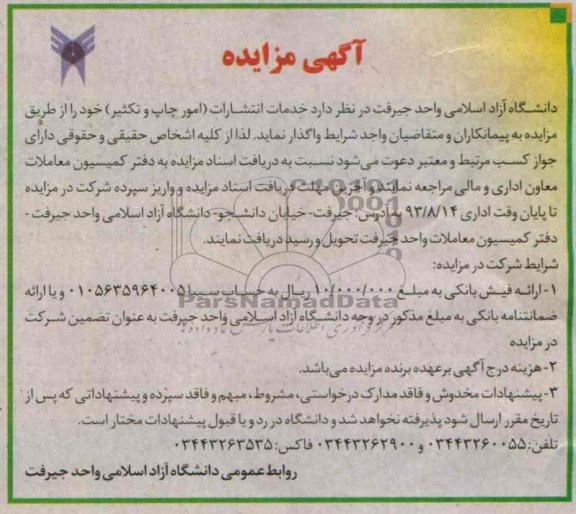 آگهی مزایده
دانشگاه آزاد اسلامی واحد جیرفت در نظر دارد خدمات انتشارات (امور چاپ و تکثیر) خود را از طریق
مزایده به پیمانکاران و متقاضیان واجد شرایط واگذار نماید. لذا از کلیه اشخاص حقیقی و حقوقی دارای
جواز کسب مرتبط و معتبر دعوت می‌شود نسبت به دریافت اسناد مزایده به دفتر کمیسیون معاملات
معاون اداری و مالی مراجعه نمایند. آخرین مهلت دریافت اسناد مزایده و واریز سپرده شرکت در مزایده
تا پایان وقت اداری ۹۳/۸/۱۴ به آدرس: جیرفت- خیابان دانشجو- دانشگاه آزاد اسلامی واحد جیرفت -
دفتر کمیسیون معاملات واحد جیرفت تحویل و رسید دریافت نمایند.
شرایط شرکت در مزایده:
۱- ارائه فیش بانکی به مبلغ ۱۰/۰۰۰/۰۰۰ ریال به حساب سیبا ۰۱۰۵۶۳۵۹۶۴۰۰۵ و یا ارائه
ParsNamadData
ضمانتنامه بانکی به مبلغ مذکور در وجه دانشگاه آزاد اسلامی واحد جیرفت به عنوان تضمین شرکت
در مزایده
۲- هزینه درج آگهی بر عهده برنده مزایده می‌باشد.
۳- پیشنهادات مخدوش و فاقد مدارک درخواستی، مشروط، مبهم و فاقد سپرده و پیشنهاداتی که پس از
تاریخ مقرر ارسال شود پذیرفته نخواهد شد و دانشگاه در رد و یا قبول پیشنهادات مختار است.
تلفن: ۰۳۴۴۳۲۶۰۰۵۵ و ۰۳۴۴۳۲۶۲۹۰۰ فاکس: ۰۳۴۴۳۲۶۳۵۳۵
روابط عمومی دانشگاه آزاد اسلامی واحد جیرفت